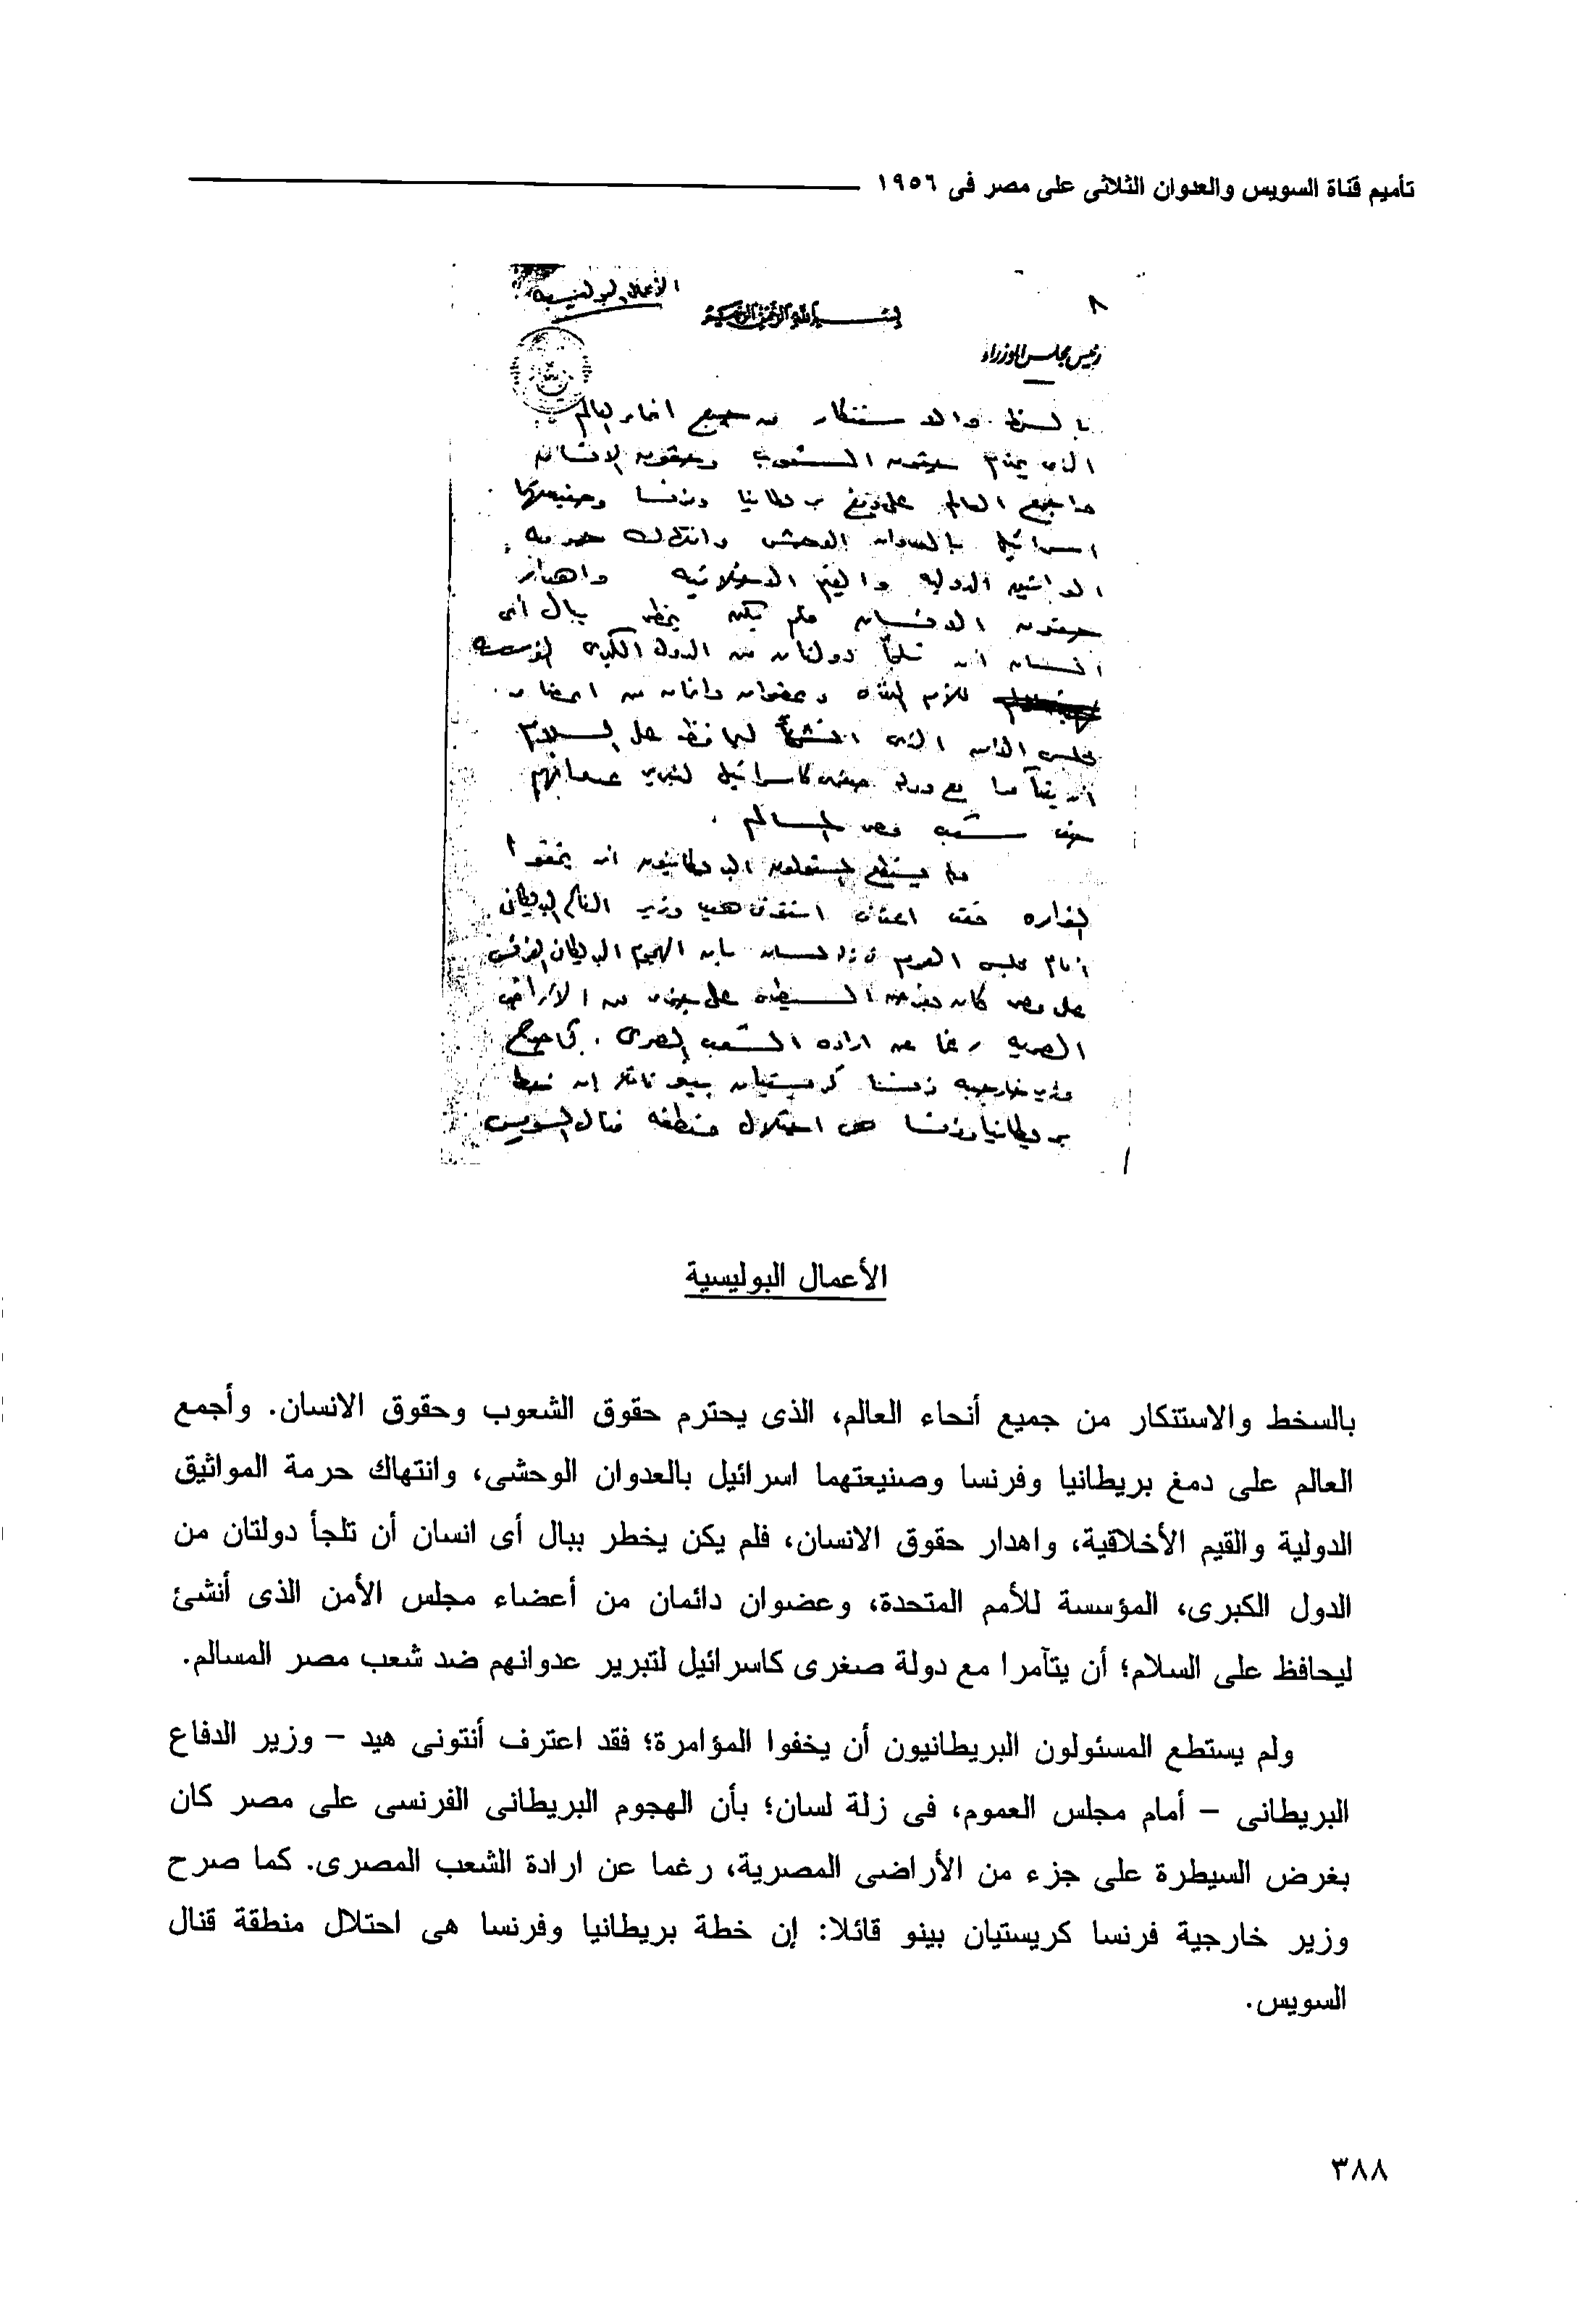 تأميم قناة السويس والعدوان الثلاثى على مصر فى ١٩٥٦
الأعمال البوليسية
٨
بسم الله الرحمن الرحيم
رئيس مجلس الوزراء
بالسخط والاستنكار من جميع انحاء العالم
الذى يحترم حقوق الشعوب وحقوق الانسان
واجمع العالم على دمغ بريطانيا وفرنسا وصنيعتهما
اسرائيل بالعدوان الوحشى وانتهاك حرمه
المواثيق الدوليه والقيم الاخلاقيه واهدار
حقوق الانسان فلم يكن يخطر ببال أى
انسان ان تلجأ دولتان من الدول الكبرى المؤسسه
للأمم المتحده وعضوان دائمان من اعضاء
مجلس الأمن الذى انشئ ليحافظ على السلام
ان يتآمرا مع دوله صغرى كاسرائيل لتبرير عدوانهم
ضد شعب مصر المسالم .
ولم يستطع المسئولون البريطانيون ان يخفوا
فقد اعترف انتونى هيد وزير الدفاع البريطانى
أمام مجلس العموم فى زلة لسان بان الهجوم البريطانى الفرنسى
على مصر كان بغرض السيطره على جزء من الأراضى
المصريه رغما عن اراده الشعب المصرى . كما صرح
وزير خارجيه فرنسا كريستيان بينو قائلا ان خطة
بريطانيا وفرنسا هى احتلال منطقه قنال السويس
الأعمال البوليسية
بالسخط والاستنكار من جميع أنحاء العالم، الذى يحترم حقوق الشعوب وحقوق الانسان. وأجمع
العالم على دمغ بريطانيا وفرنسا وصنيعتهما اسرائيل بالعدوان الوحشى، وانتهاك حرمة المواثيق
الدولية والقيم الأخلاقية، واهدار حقوق الانسان، فلم يكن يخطر ببال أى انسان أن تلجأ دولتان من
الدول الكبرى، المؤسسة للأمم المتحدة، وعضوان دائمان من أعضاء مجلس الأمن الذى أنشئ
ليحافظ على السلام؛ أن يتآمرا مع دولة صغرى كاسرائيل لتبرير عدوانهم ضد شعب مصر المسالم.
ولم يستطع المسئولون البريطانيون أن يخفوا المؤامرة؛ فقد اعترف أنتونى هيد – وزير الدفاع
البريطانى – أمام مجلس العموم، فى زلة لسان؛ بأن الهجوم البريطانى الفرنسى على مصر كان
بغرض السيطرة على جزء من الأراضى المصرية، رغما عن ارادة الشعب المصرى. كما صرح
وزير خارجية فرنسا كريستيان بينو قائلا: إن خطة بريطانيا وفرنسا هى احتلال منطقة قنال
السويس.
٣٨٨